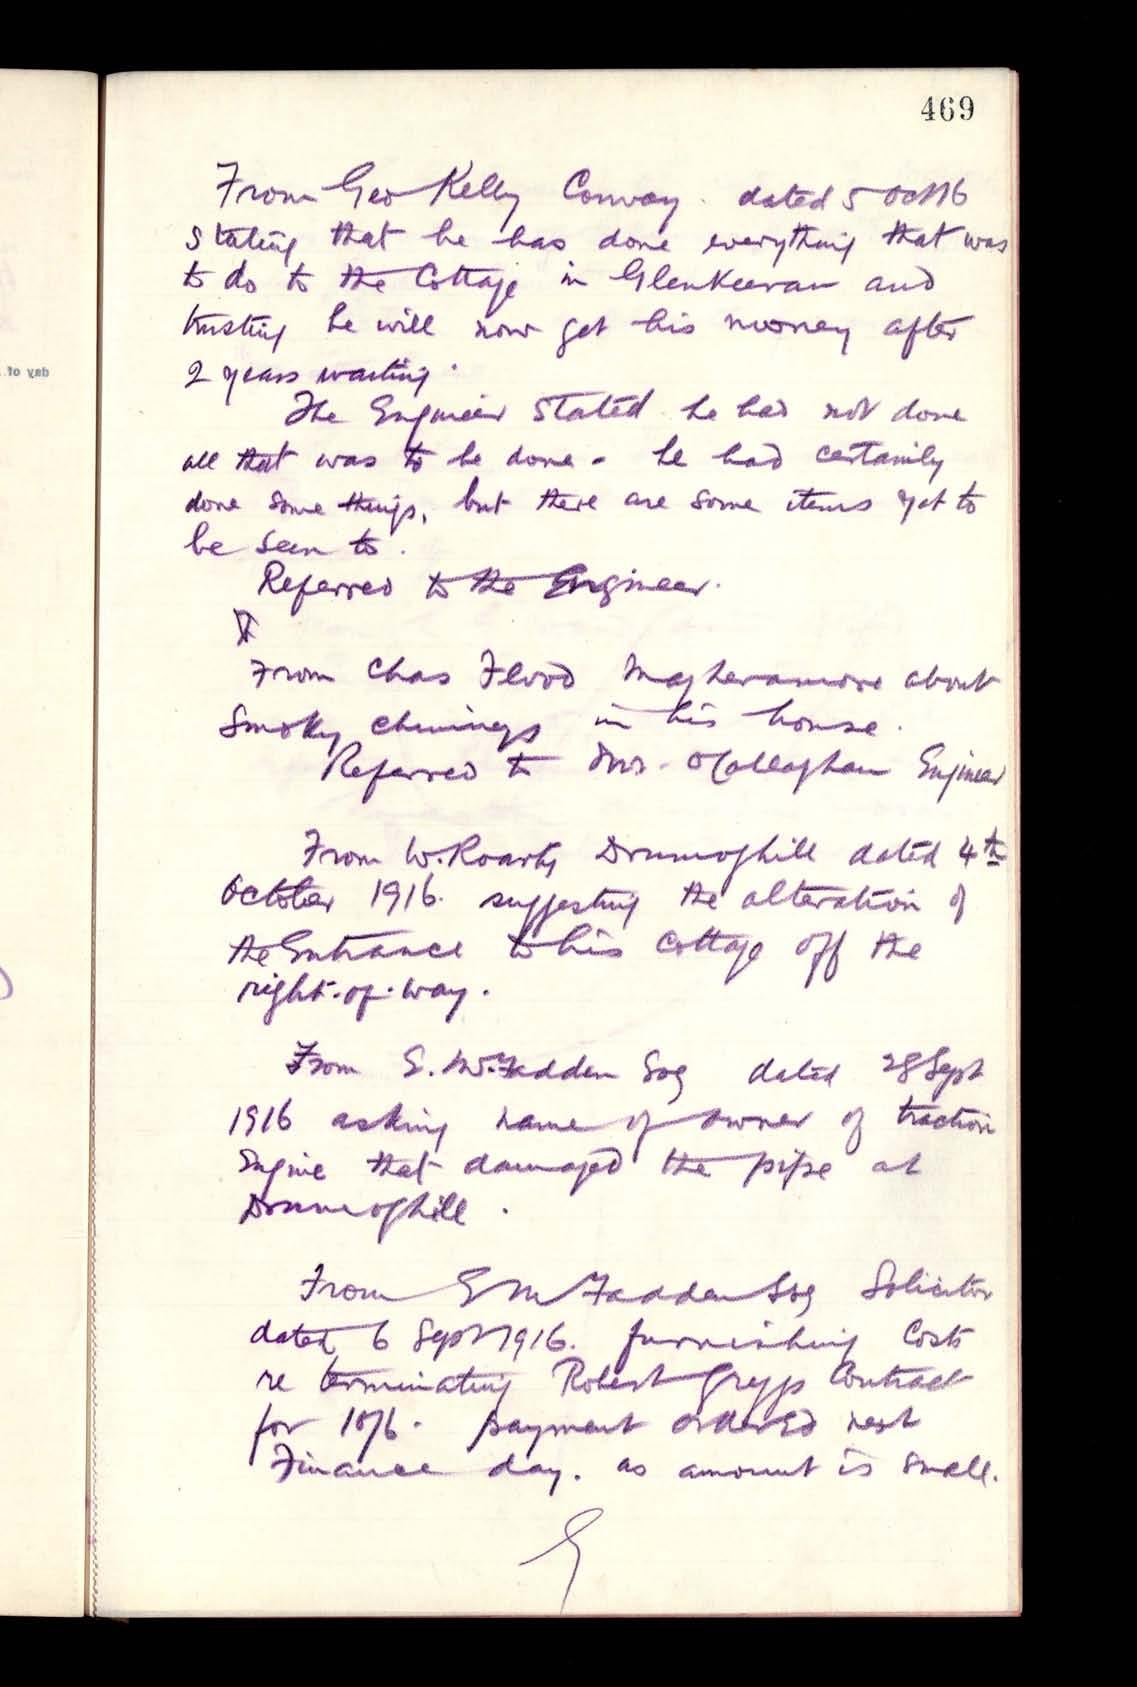 469
From Geo Kelly Conway. dated 5 Oct 16
stating that he has done everything that was
to do to the Cottage in Glenkeeran and
trusting he will now get his money after
2 years waiting.
The Engineer stated he had not done
all that was to be done - he had certainly
done some things, but there are some items yet to
be seen to.
Referred to the Engineer.
From Chas Flood Magheramore about
Smoky chimneys in his house.
Referred to Mr. O'Callaghan Engineer
From W. Roarty Drumoghill dated 4th
October 1916. suggesting the alteration of
the Entrance to his cottage off the
right-of-way.
From E. McFadden Esq dated 28 Sept
1916 asking name of owner of traction
Engine that damaged the pipe at
Drumoghill.
From E McFadden Esq Solicitor
dated 6 Sept 1916. furnishing Costs
re terminating Robert Greggs Contract
for 10/6. payment ordered next
Finance day. as amount is small.
day of